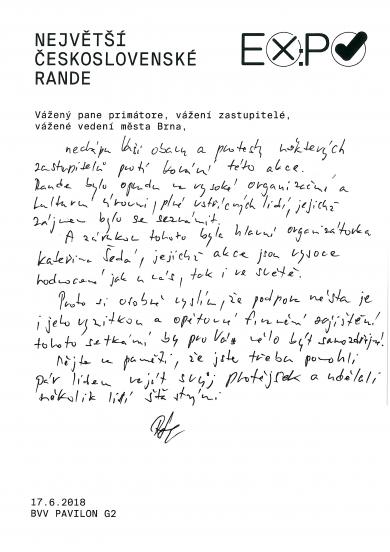 NEJVĚTŠÍ
ČESKOSLOVENSKÉ
RANDE
EXPO
Vážený pane primátore, vážení zastupitelé,
vážené vedení města Brna,
nechápu Vaši obavu a protesty některých
zastupitelů proti konání této akce.
Rande bylo opravdu na vysoké organizační a
kulturní úrovni, plné vstřícných lidí, jejichž
zájmem bylo se seznámit.
A zárukou tohoto byla hlavní organizátorka
Kateřina Šedá, jejichž akce jsou vysoce
hodnocené jak u nás, tak i ve světě.
Proto si osobně myslím, že podpora města je
i jeho vizitkou a opětovné finanční zajištění
tohoto setkání by pro Vás mělo být samozřejmé.
Mějte na paměti, že jste třeba pomohli
pár lidem najít svůj protějšek a udělali
několik lidí šťastnými
17.6.2018
BVV PAVILON G2